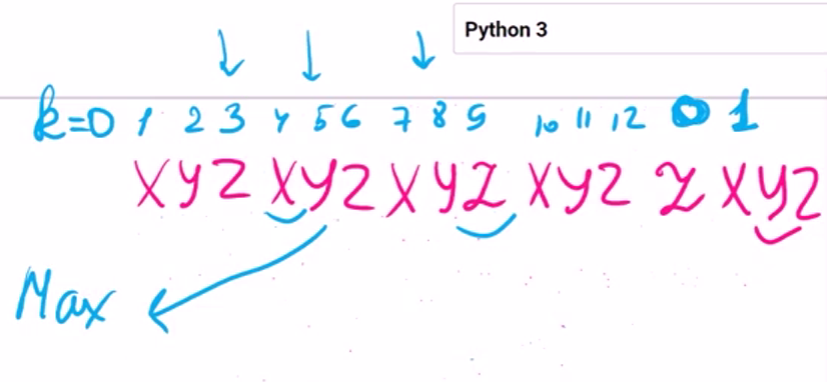 Python 3
k=0 1 2 3 4 5 6 7 8 9 10 11 12 0 1
XYZ XYZ XYZ XYZ Z XYZ
Max